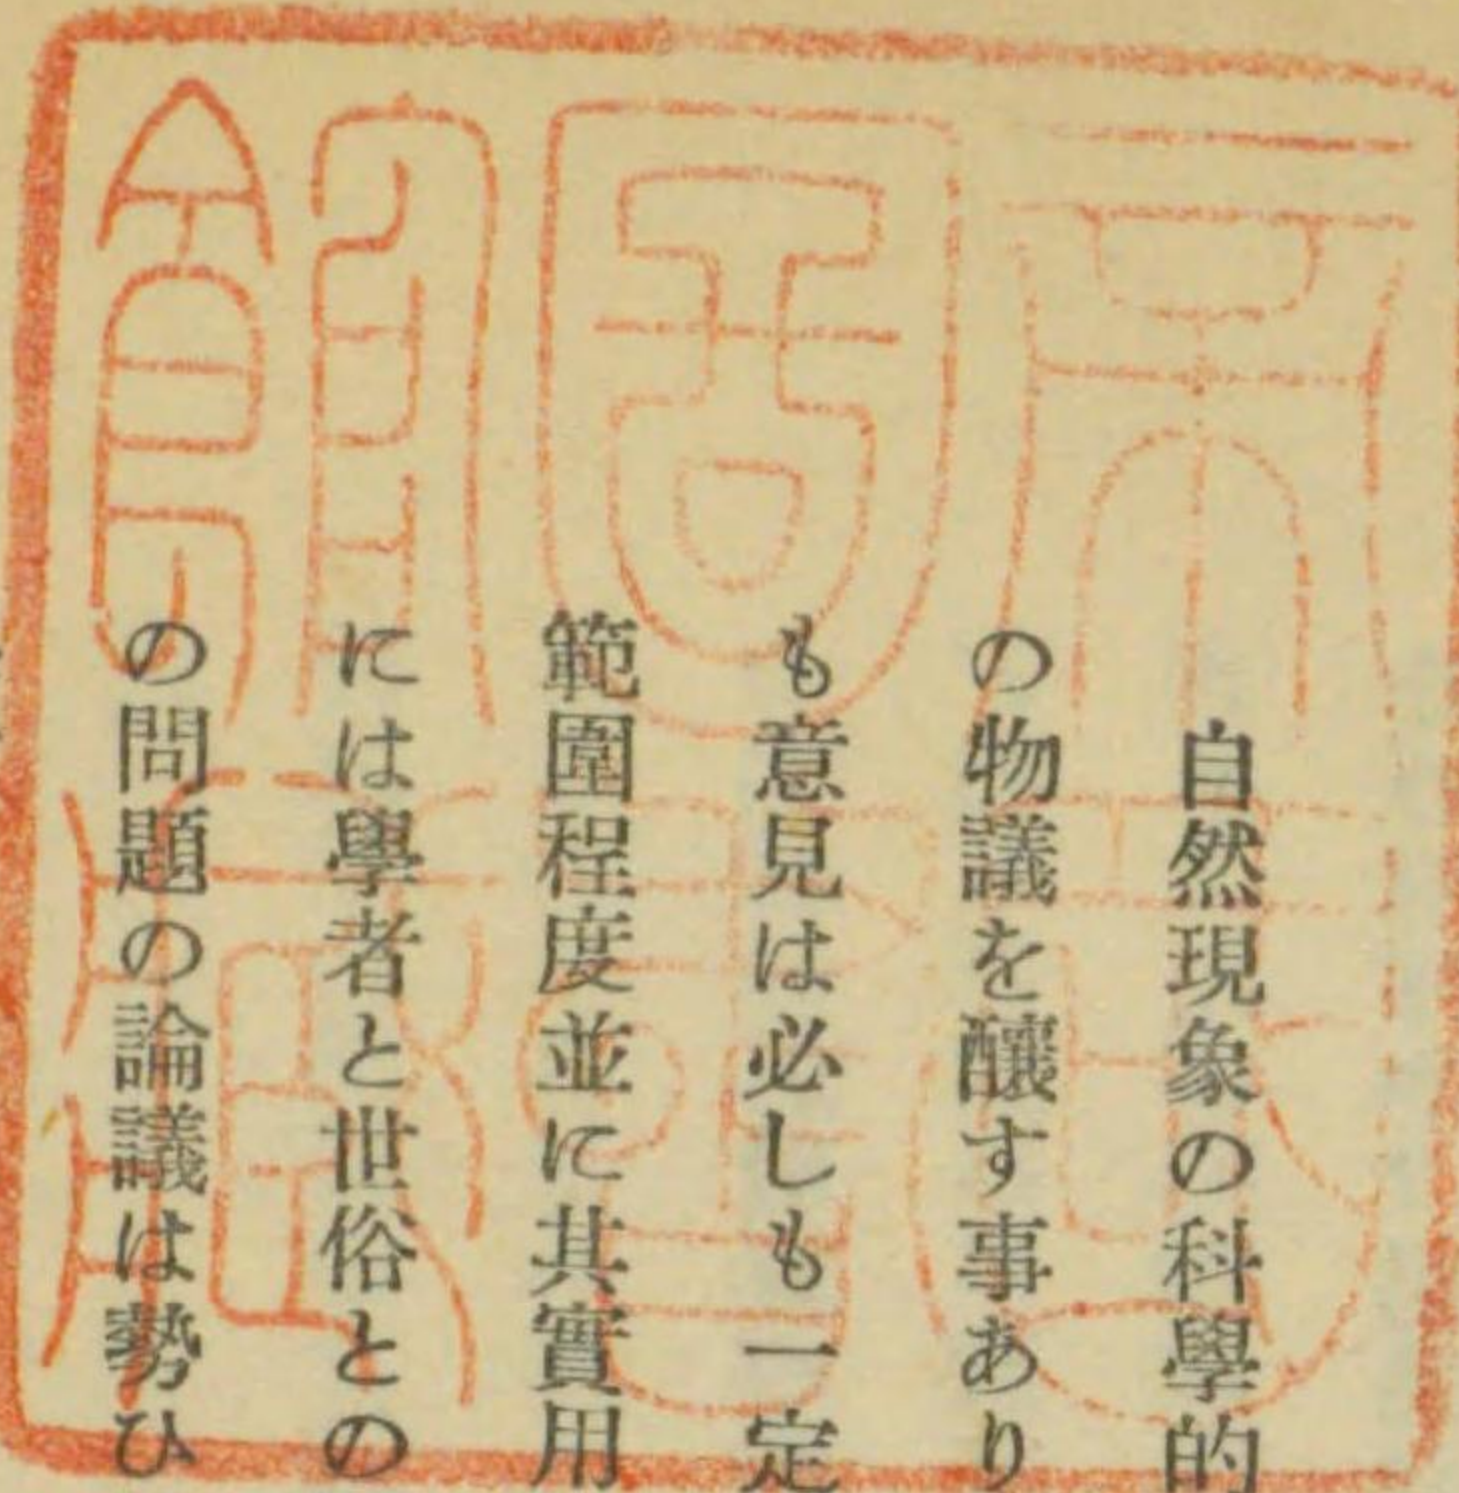 自然現象の科學的
の物議を釀す事あり
も意見は必しも一定
範圍程度並に其實用
には學者と世俗との
の問題の論議は勢ひ